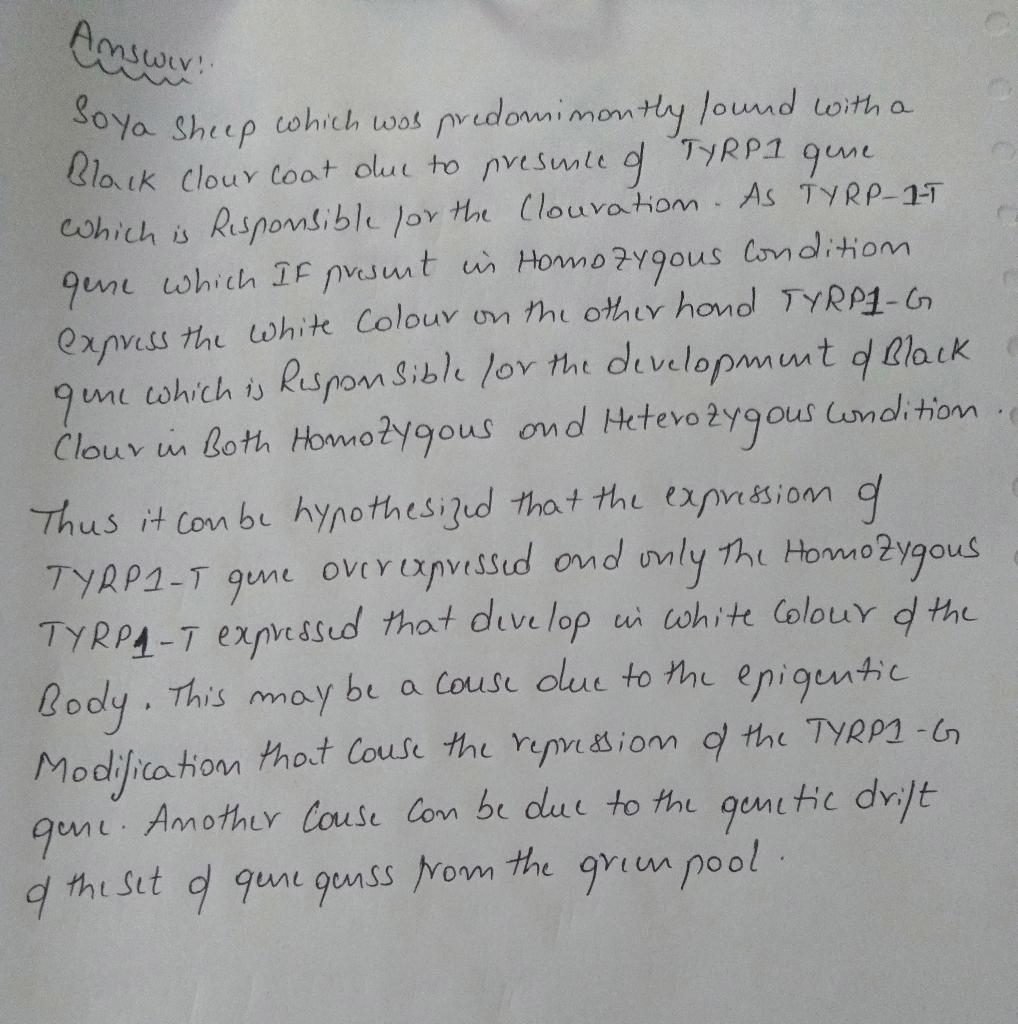 Answer:
Soya sheep which was predominontly found with a
Black Clour coat due to presence of TYRP1 gene
which is Responsible for the Clouration. As TYRP-1-T
gene which IF present in Homozygous Condition
express the white Colour on the other hond TYRP1-G
gene which is Responsible for the development of Black
Clour in Both Homozygous ond Heterozygous Condition.
Thus it con be hypothesized that the expression of
TYRP1-T gene overexpressed ond only The Homozygous
TYRP1-T expressed that develop in white Colour of the
Body. This may be a couse due to the epigentic
Modification thot Couse the repression of the TYRP1-G
gene. Another Couse Con be due to the genetic drift
of the set of gene genss from the green pool.